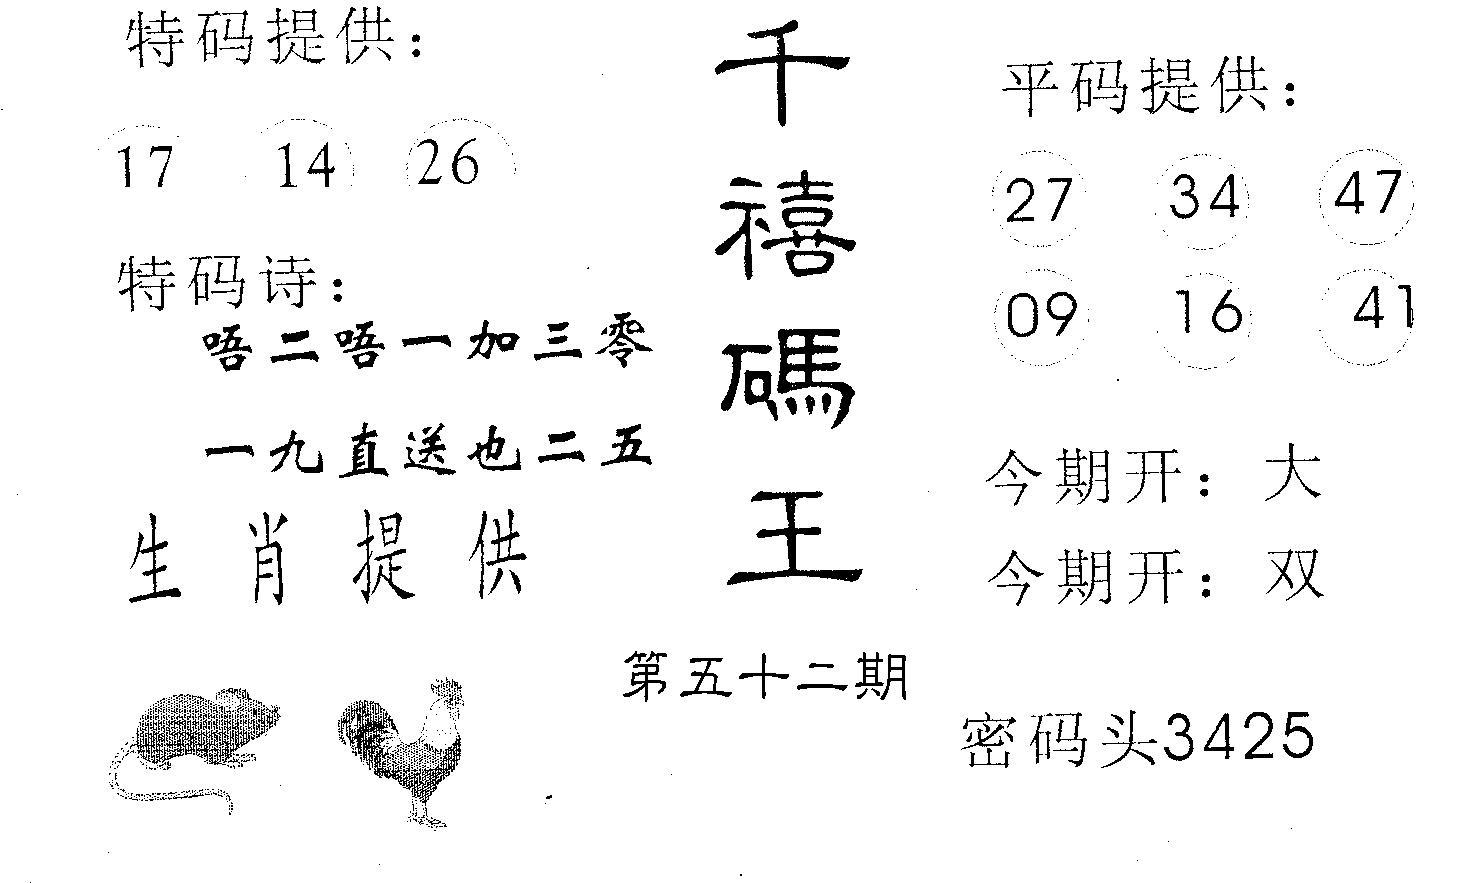 特码提供：
17 14 26
特码诗：
唔二唔一加三零
一九直送也二五
生肖提供
千禧碼王
第五十二期
平码提供：
27 34 47
09 16 41
今期开：大
今期开：双
密码头3425